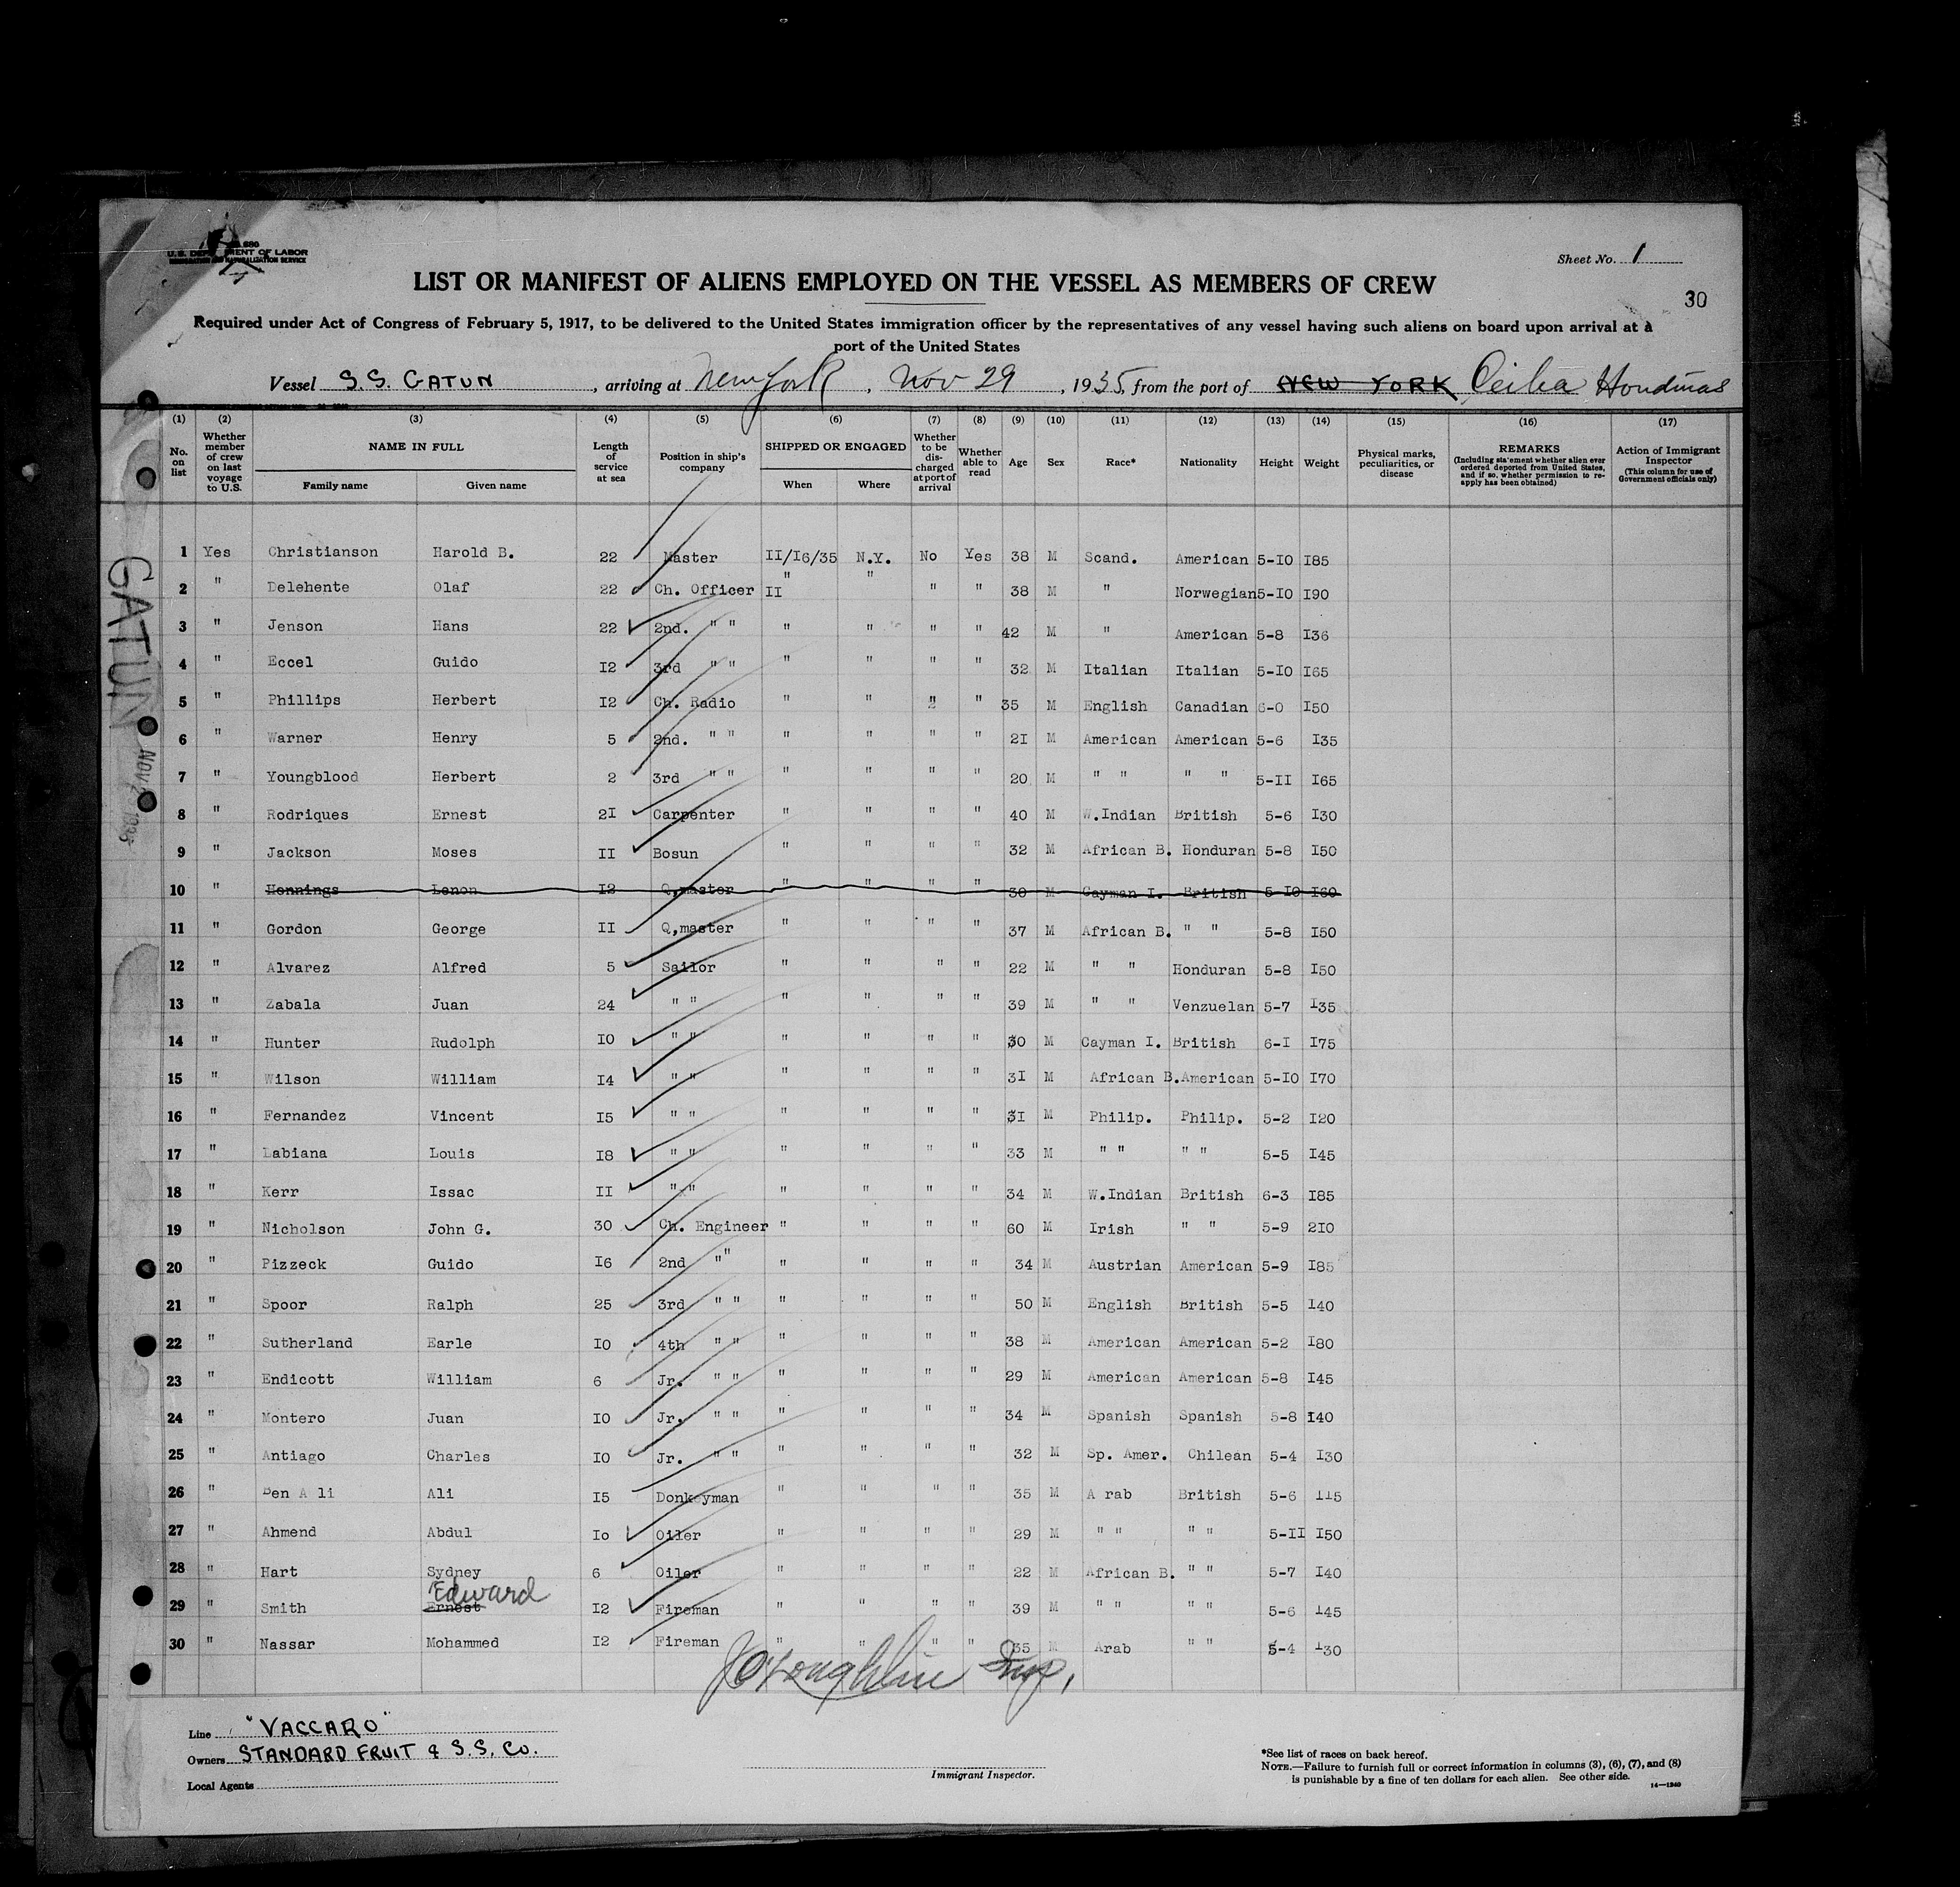 U.S. DEPARTMENT OF LABOR
IMMIGRATION AND NATURALIZATION SERVICE
Sheet No. 1
LIST OR MANIFEST OF ALIENS EMPLOYED ON THE VESSEL AS MEMBERS OF CREW
30
Required under Act of Congress of February 5, 1917, to be delivered to the United States immigration officer by the representatives of any vessel having such aliens on board upon arrival at a
port of the United States
Vessel S.S. GATUN, arriving at New York, Nov 29, 1935, from the port of NEW YORK Ceiba Honduras
(1) (2) (3) (4) (5) (6) (7) (8) (9) (10) (11) (12) (13) (14) (15) (16) (17)
No. on list
Whether member of crew on last voyage to U.S.
NAME IN FULL
Family name Given name
Length of service at sea
Position in ship's company
SHIPPED OR ENGAGED
When Where
Whether to be discharged at port of arrival
Whether able to read
Age
Sex
Race*
Nationality
Height
Weight
Physical marks, peculiarities, or disease
REMARKS
(Including statement whether alien ever ordered deported from United States, and if so, whether permission to re-apply has been obtained)
Action of Immigrant Inspector
(This column for use of Government officials only)
1 Yes Christianson Harold B. 22 Master II/I6/35 N.Y. No Yes 38 M Scand. American 5-IO I85
2 " Delehente Olaf 22 Ch. Officer II " " " " 38 M " Norwegian 5-IO I90
3 " Jenson Hans 22 2nd. " " " " " " 42 M " American 5-8 I36
4 " Eccel Guido I2 3rd " " " " " " 32 M Italian Italian 5-IO I65
5 " Phillips Herbert I2 Ch. Radio " " " " 35 M English Canadian 6-0 I50
6 " Warner Henry 5 2nd. " " " " " " 2I M American American 5-6 I35
7 " Youngblood Herbert 2 3rd " " " " " " 20 M " " " " 5-II I65
8 " Rodriques Ernest 2I Carpenter " " " " 40 M W.Indian British 5-6 I30
9 " Jackson Moses II Bosun " " " " 32 M African B. Honduran 5-8 I50
10 " Hennings Lenon I2 Q,master " " " " 30 M Cayman I. British 5-IO I60
11 " Gordon George II Q,master " " " " 37 M African B. " " 5-8 I50
12 " Alvarez Alfred 5 Sailor " " " " 22 M " " Honduran 5-8 I50
13 " Zabala Juan 24 " " " " " " 39 M " " Venzuelan 5-7 I35
14 " Hunter Rudolph IO " " " " " " 30 M Cayman I. British 6-I I75
15 " Wilson William I4 " " " " " " 3I M African B. American 5-IO I70
16 " Fernandez Vincent I5 " " " " " " 3I M Philip. Philip. 5-2 I20
17 " Labiana Louis I8 " " " " " " 33 M " " " " 5-5 I45
18 " Kerr Issac II " " " " " " 34 M W.Indian British 6-3 I85
19 " Nicholson John G. 30 Ch. Engineer " " " " 60 M Irish " " 5-9 2IO
20 " Pizzeck Guido I6 2nd " " " " " " 34 M Austrian American 5-9 I85
21 " Spoor Ralph 25 3rd " " " " " " 50 M English British 5-5 I40
22 " Sutherland Earle IO 4th " " " " " " 38 M American American 5-2 I80
23 " Endicott William 6 Jr. " " " " " " 29 M American American 5-8 I45
24 " Montero Juan IO Jr. " " " " " " 34 M Spanish Spanish 5-8 I40
25 " Antiago Charles IO Jr. " " " " " " 32 M Sp. Amer. Chilean 5-4 I30
26 " Ben A li Ali I5 Donkeyman " " " " 35 M A rab British 5-6 II5
27 " Ahmend Abdul Io Oiler " " " " 29 M " " " " 5-II I50
28 " Hart Sydney 6 Oiler " " " " 22 M African B. " " 5-7 I40
29 " Smith Ernest Edward I2 Fireman " " " " 39 M " " " " 5-6 I45
30 " Nassar Mohammed I2 Fireman " " " " 35 M Arab " " 5-4 I30
J O'Loughlin Insp.
GATUN
NOV 29 1935
Line "VACCARO"
Owners STANDARD FRUIT & S.S. Co.
Local Agents
Immigrant Inspector.
*See list of races on back hereof.
NOTE.—Failure to furnish full or correct information in columns (3), (6), (7), and (8)
is punishable by a fine of ten dollars for each alien. See other side.
14—1240